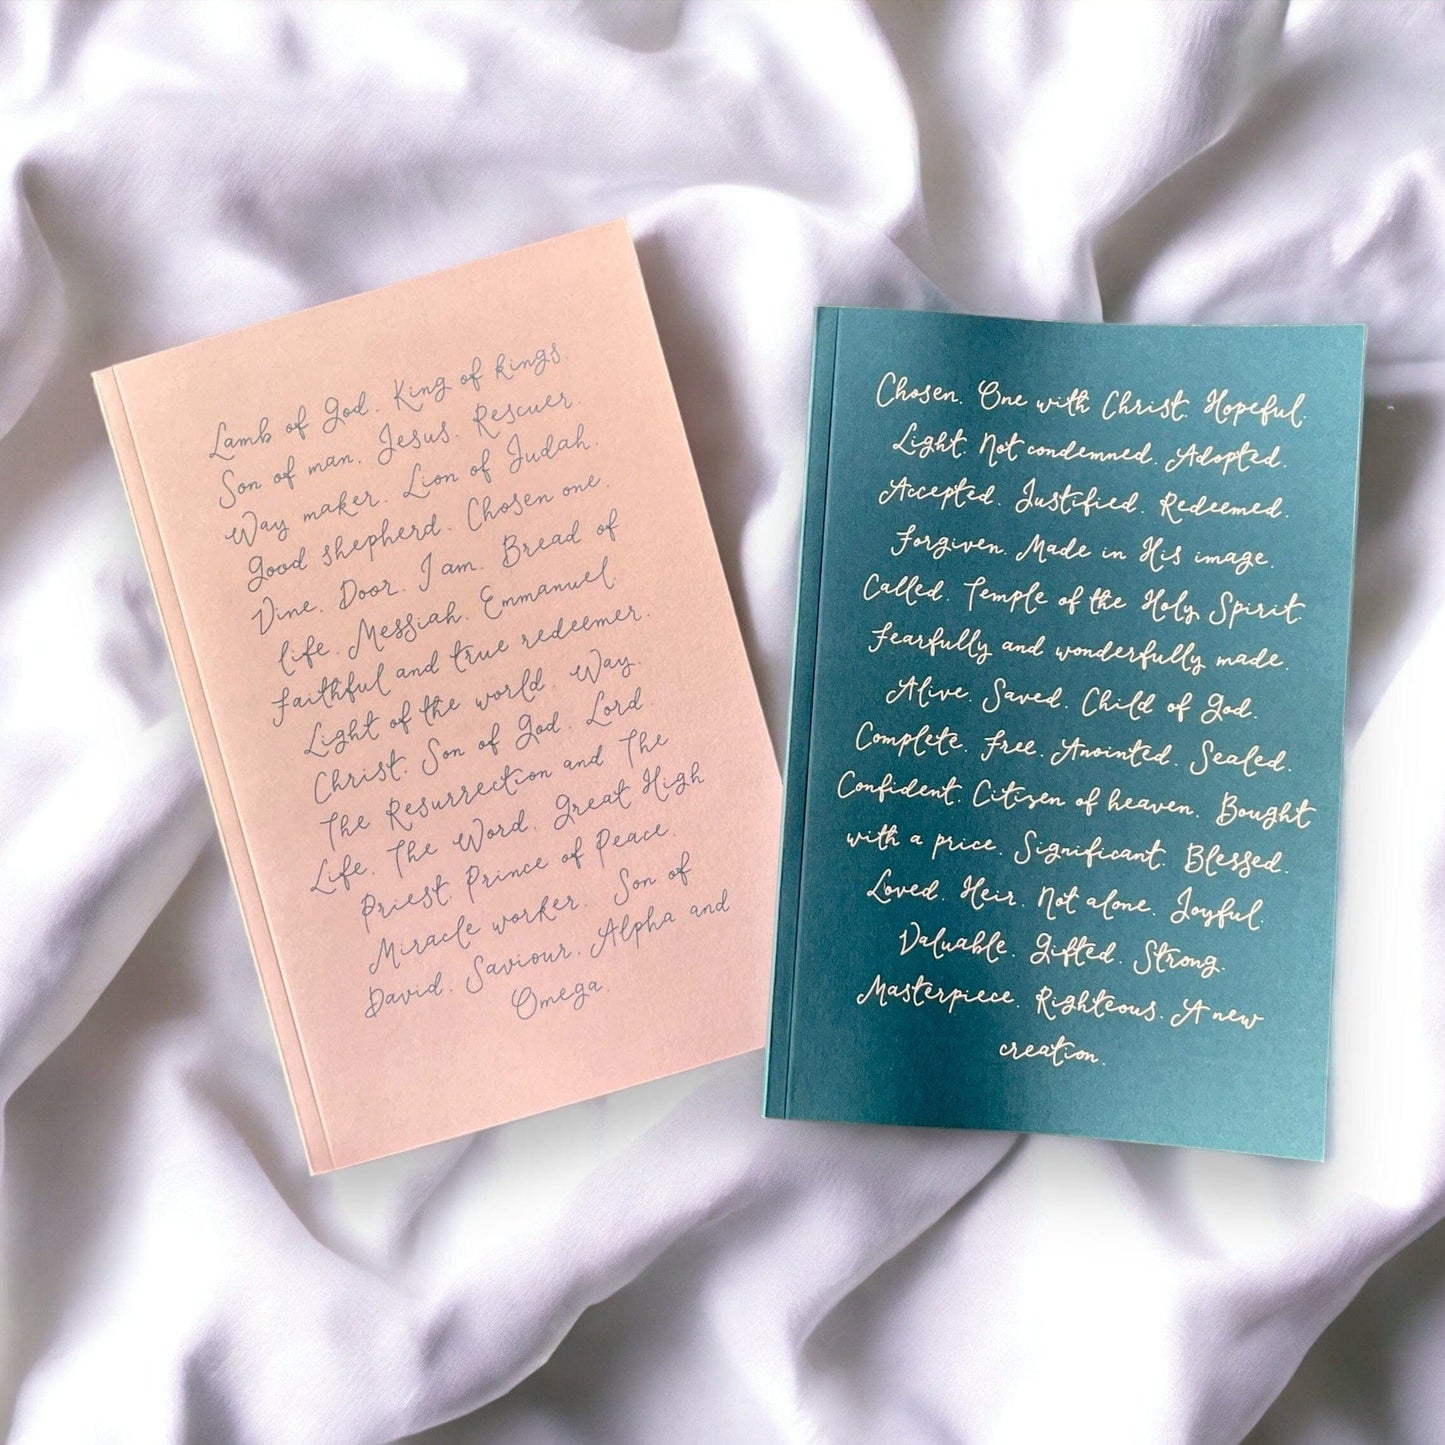 Lamb of God. King of kings.
Son of man. Jesus. Rescuer.
Way maker. Lion of Judah.
Good shepherd. Chosen one.
Vine. Door. I am. Bread of
life. Messiah. Emmanuel.
Faithful and true redeemer.
Light of the world. Way.
Christ. Son of God. Lord.
The Resurrection and The
Life. The Word. Great High
Priest. Prince of Peace.
Miracle worker. Son of
David. Saviour. Alpha and
Omega.
Chosen. One with Christ. Hopeful.
Light. Not condemned. Adopted.
Accepted. Justified. Redeemed.
Forgiven. Made in His image.
Called. Temple of the Holy Spirit.
Fearfully and wonderfully made.
Alive. Saved. Child of God.
Complete. Free. Anointed. Sealed.
Confident. Citizen of heaven. Bought
with a price. Significant. Blessed.
Loved. Heir. Not alone. Joyful.
Valuable. Gifted. Strong.
Masterpiece. Righteous. A new
creation.